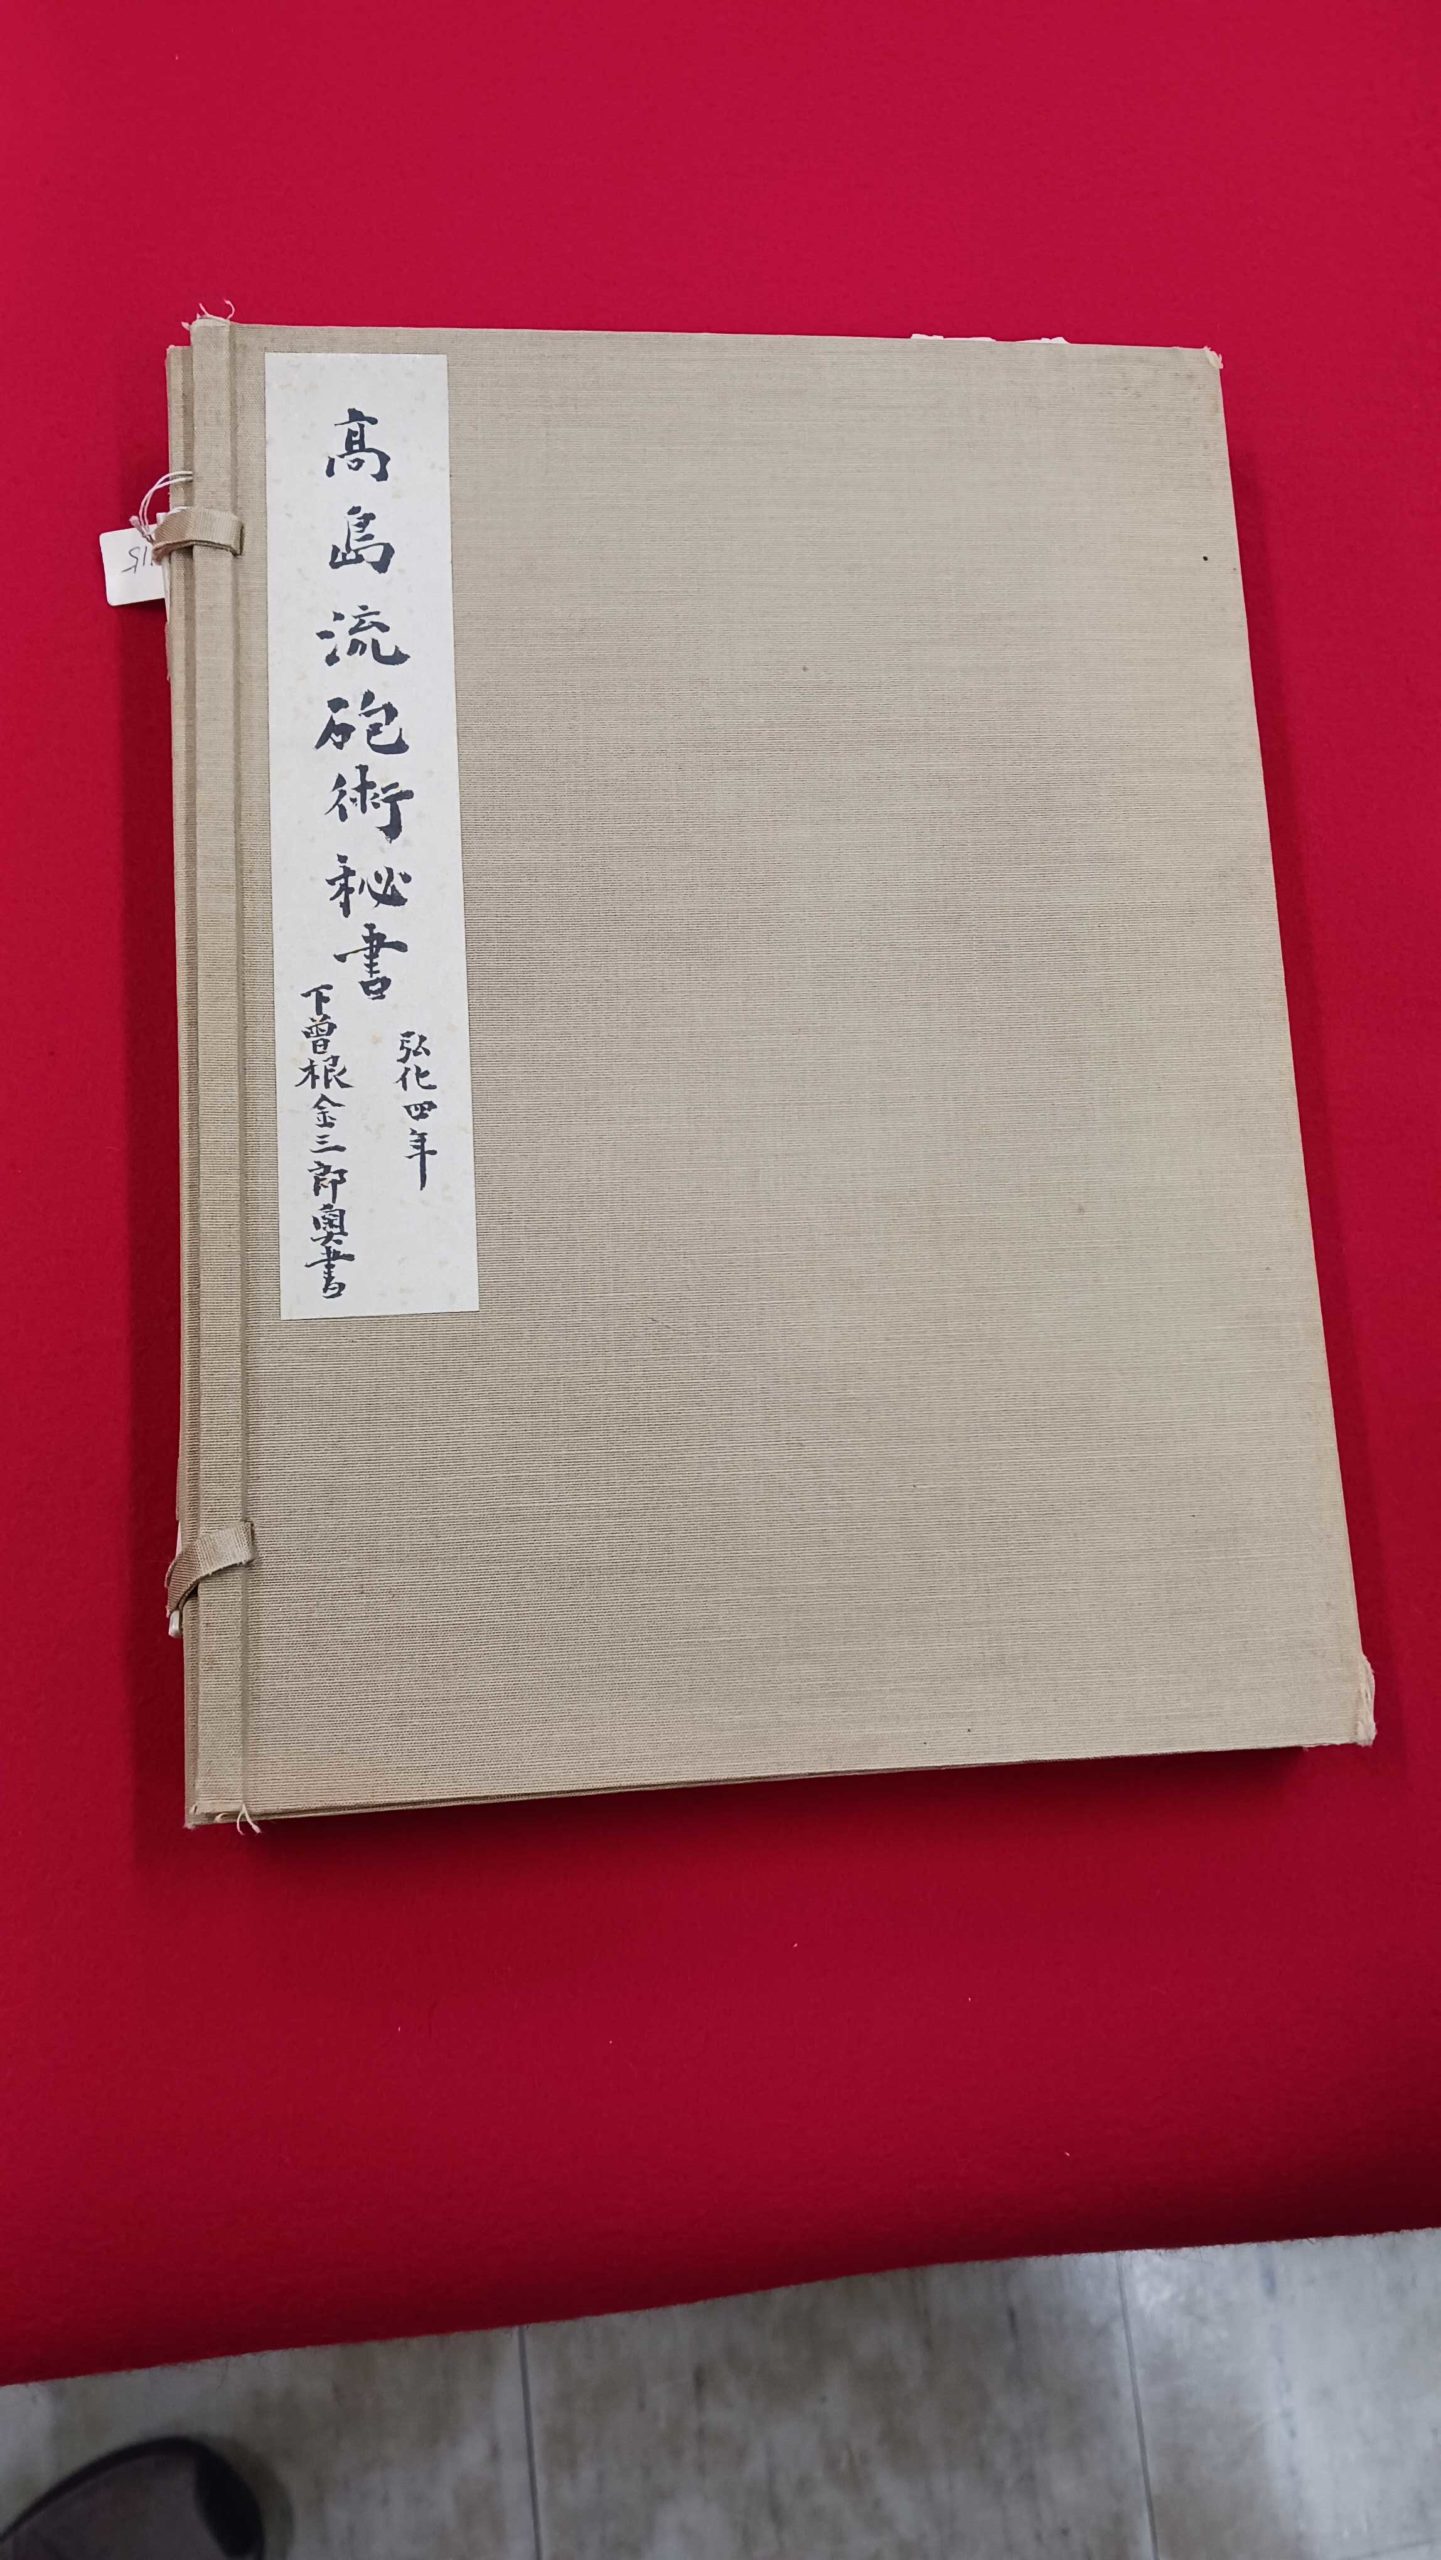 高島流砲術秘書
弘化四年
下曽根金三郎奥書